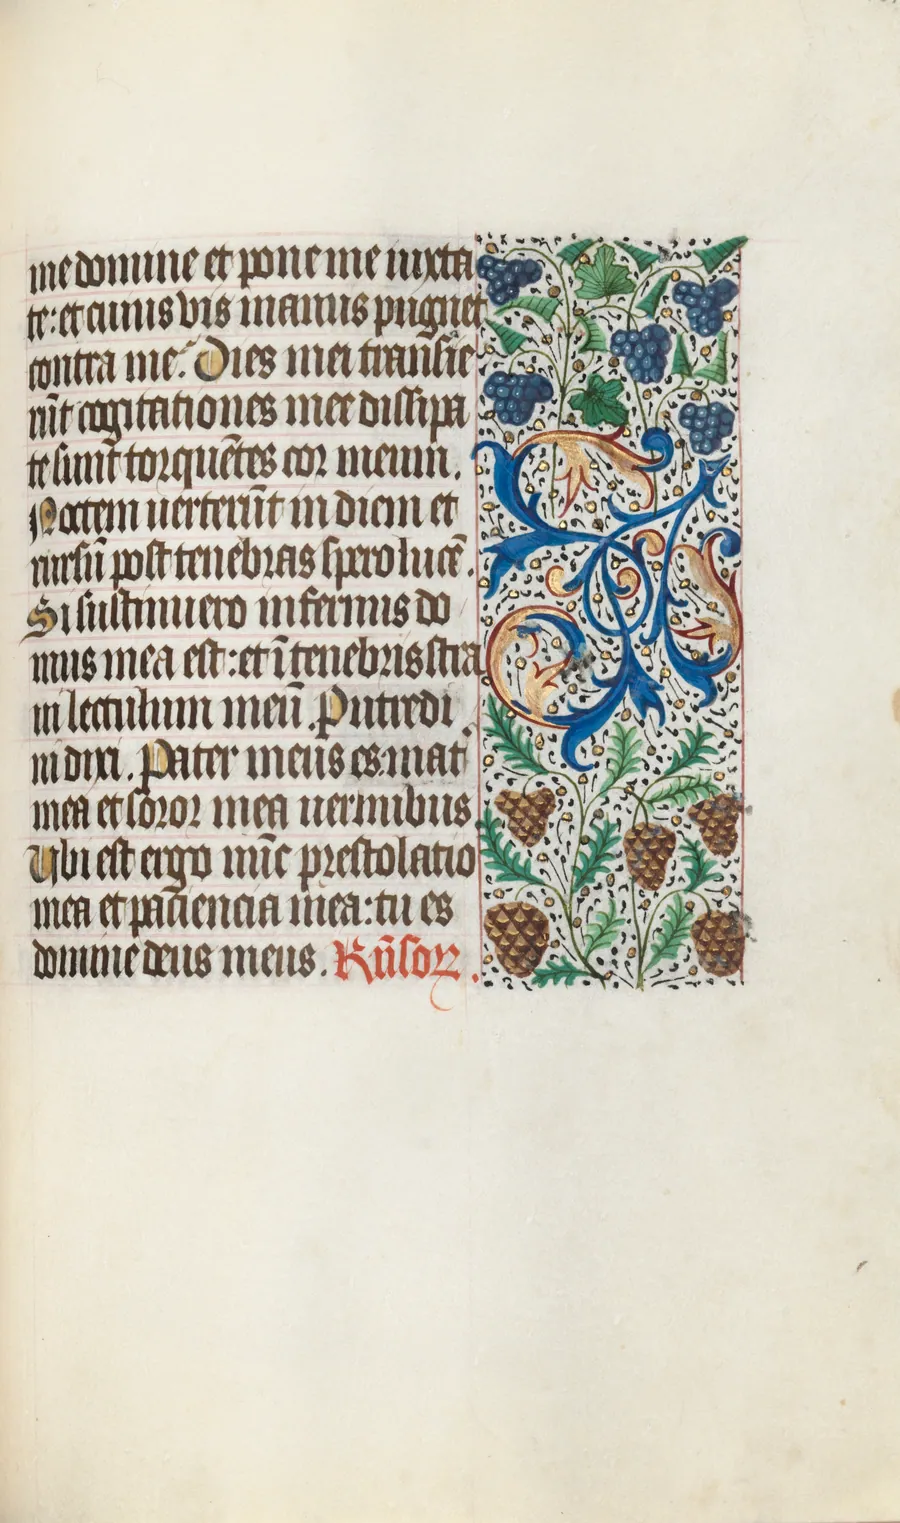 me domine et pone me iuxta
te: et cuius vis manus pugnet
contra me. Dies mei transie
rūt cogitationes mee dissipa
te sunt torquētes cor meum.
Noctem verterūt in diem et
rursū post tenebras spero lucē.
Si sustinuero infernus do
mus mea est: et ī tenebris stra
ui lectulum meū. Putredi
ni dixi. Pater meus es. mat̄
mea et soror mea uermibus.
Vbi est ergo nūc prestolatio
mea et paciencia mea: tu es
domine deus meus. Rūsorz.